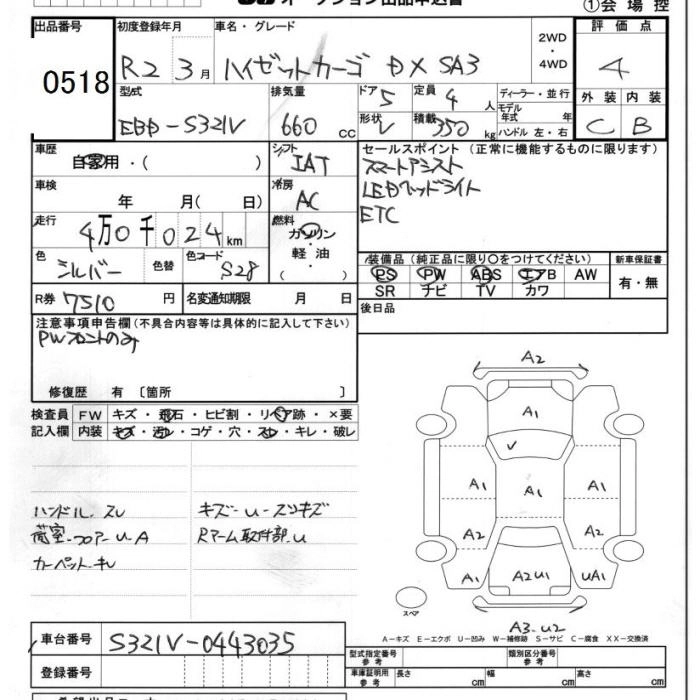 ①会場控
出品番号 初度登録年月 車名・グレード 評価点
0518 R2 3月 ハイゼットカーゴ DX SA3 2WD・4WD 4
型式 排気量 ドア 5 定員 4人 ディーラー・並行 外装 内装
EBD-S321V 660 cc 形状 V 積載 350 kg モデル年式 年 ハンドル 左・右 C B
車歴 自家用・( ) シフト IAT セールスポイント (正常に機能するものに限ります)
スマートアシスト
車検 年 月( 日) 冷房 AC LEDヘッドライト
ETC
走行 4万0千024km 燃料 ガソリン・軽油・( )
色 シルバー 色替 色コード S28 装備品 (純正品に限り○をつけてください) 新車保証書
PS PW ABS エアB AW 有・無
R券 7510円 名変通知期限 月 日 SR ナビ TV カワ
注意事項申告欄 (不具合内容等は具体的に記入して下さい) 後日品
PWフロントのみ
修復歴 有〔箇所 〕
検査員 FW キズ・飛石・ヒビ割・リペア跡・×要
記入欄 内装 キズ・汚レ・コゲ・穴・スレ・キレ・破レ
ハンドル.スレ キズ-U-スリキズ
荷室-フロアーUA Rアーム取付部.U
カーペット.キレ
A2
A1
A1 A1 A1
A2 A2
A1 A2U1 UA1
スペア
A3-U2
A-キズ E-エクボ U-凹み W-補修跡 S-サビ C-腐食 XX-交換済
車台番号 S321V-0443035 型式指定番号 参考 類別区分番号 参考
登録番号 車庫証明用 参考 長さ cm 幅 cm 高さ cm